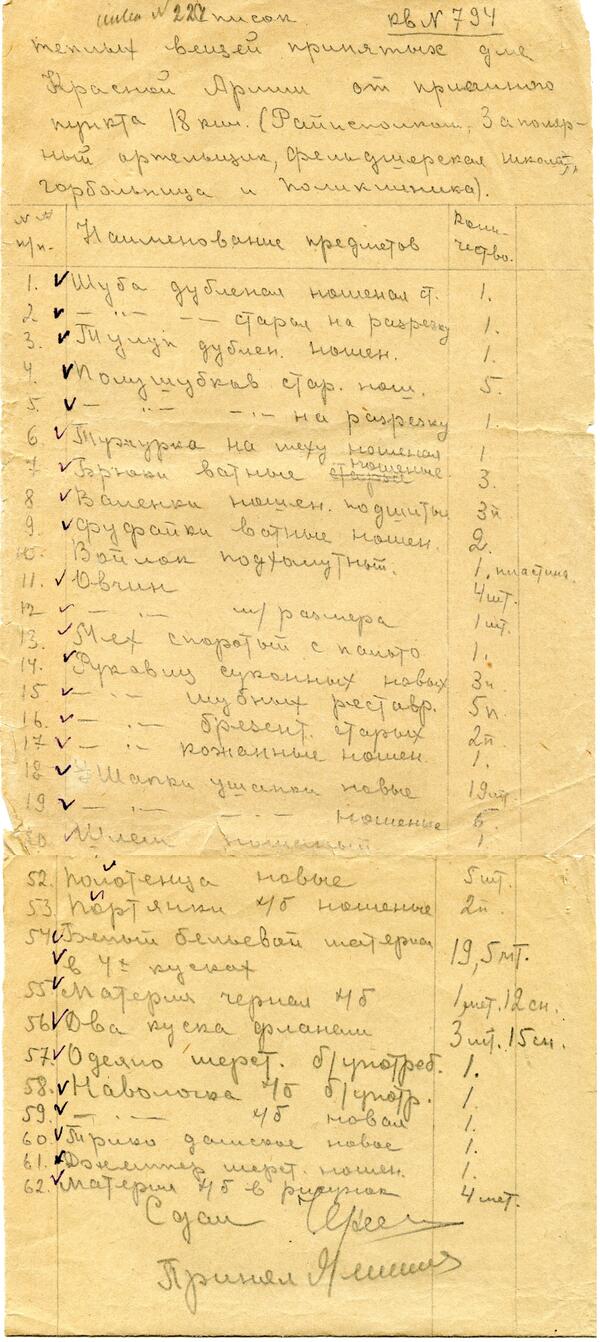 список кв N 794
теплых вещей принятых для
Красной Армии от приемного
пункта 18 кил. (Райисполком, Заполяр-
ный артельщик, фельдшерская школа,
горбольница и поликлиника).
NN п/п. Наименование предметов Коли-чество.
1. Шуба дубленая ношеная ст. 1.
2 — " — старая на разрезку 1.
3. Тулуп дублен. ношен. 1.
4. Полушубков стар. нош. 5.
5. — " — — " — на разрезку 1.
6. Тужурка на меху ношеная 1
7 Брюки ватные старые ношеные 3.
8 Валенки ношен. подшитые 3п
9 Фуфайки ватные ношен. 2.
10. Войлок подхомутный. 1. пластина.
11. Овчин 4шт.
12 — " — м/размера 1шт.
13. Мех споротый с пальто 1.
14. Рукавиц суконных новых 3п
15 — " — шубных реставр. 5п.
16. — " — брезент. старых 2п
17 — " — кожанные ношен. 1.
18 Шапки ушанки новые 19шт.
19 — " — — " — ношеные 6.
20 Шлем ношенный 1
52. Полотенца новые 5шт.
53. Портянки х/б ношеные 2п.
54. Белый бельевой материа
в 4х кусках 19,5 мт.
55 Материя черная х/б 1мет. 12 см.
56. Два куска фланели 3 мт. 15 см.
57. Одеяло шерст. б/употреб. 1.
58. Наволочка х/б б/употр. 1.
59. — " — х/б новая 1.
60. Трико дамское новое 1.
61. Джемпер шерст. ношен. 1.
62. Материя х/б в рисунок 4 мет.
Сдал
Принял